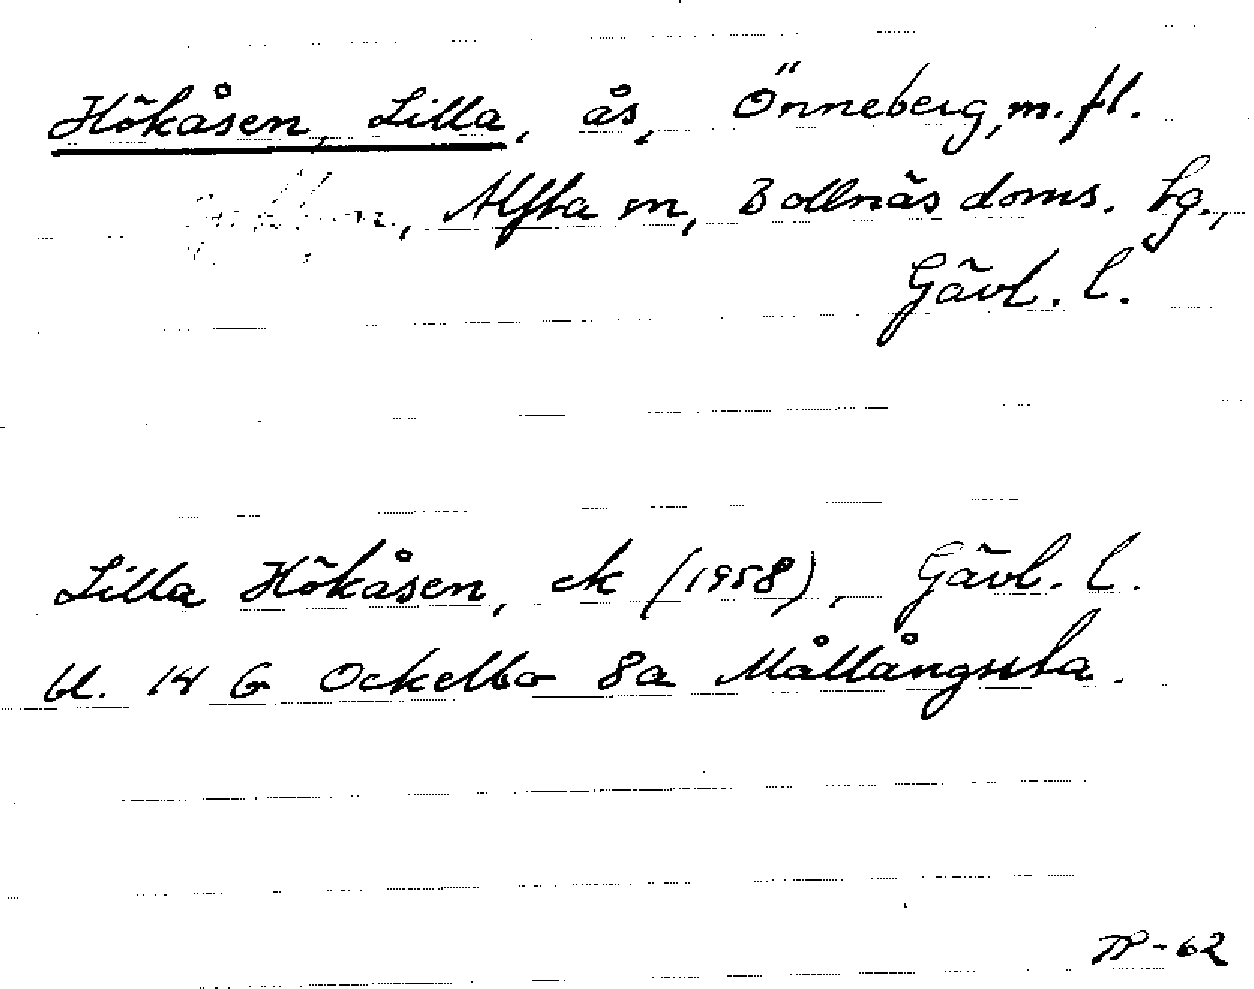 Hökåsen, Lilla, ås, Önneberg, m.fl.
Alfta sn, Bollnäs doms. tg.,
Gävl. l.
Lilla Hökåsen, ek (1958), Gävl. l.
bl. 14 G Ockelbo 8a Mållångssta.
TP-62